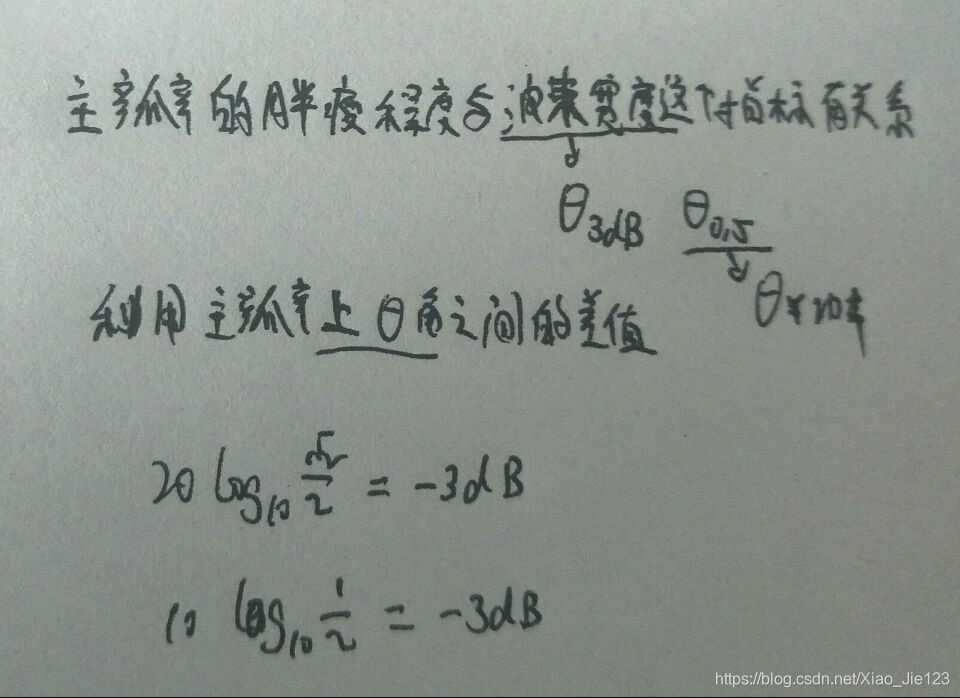 主瓣的胖瘦程度与波束宽度这个指标有关系
θ3dB θ0.5
θ半功率
利用主瓣上θ角之间的差值
20 log₁₀ √2/2 = -3dB
10 log₁₀ 1/2 = -3dB
https://blog.csdn.net/Xiao_Jie123